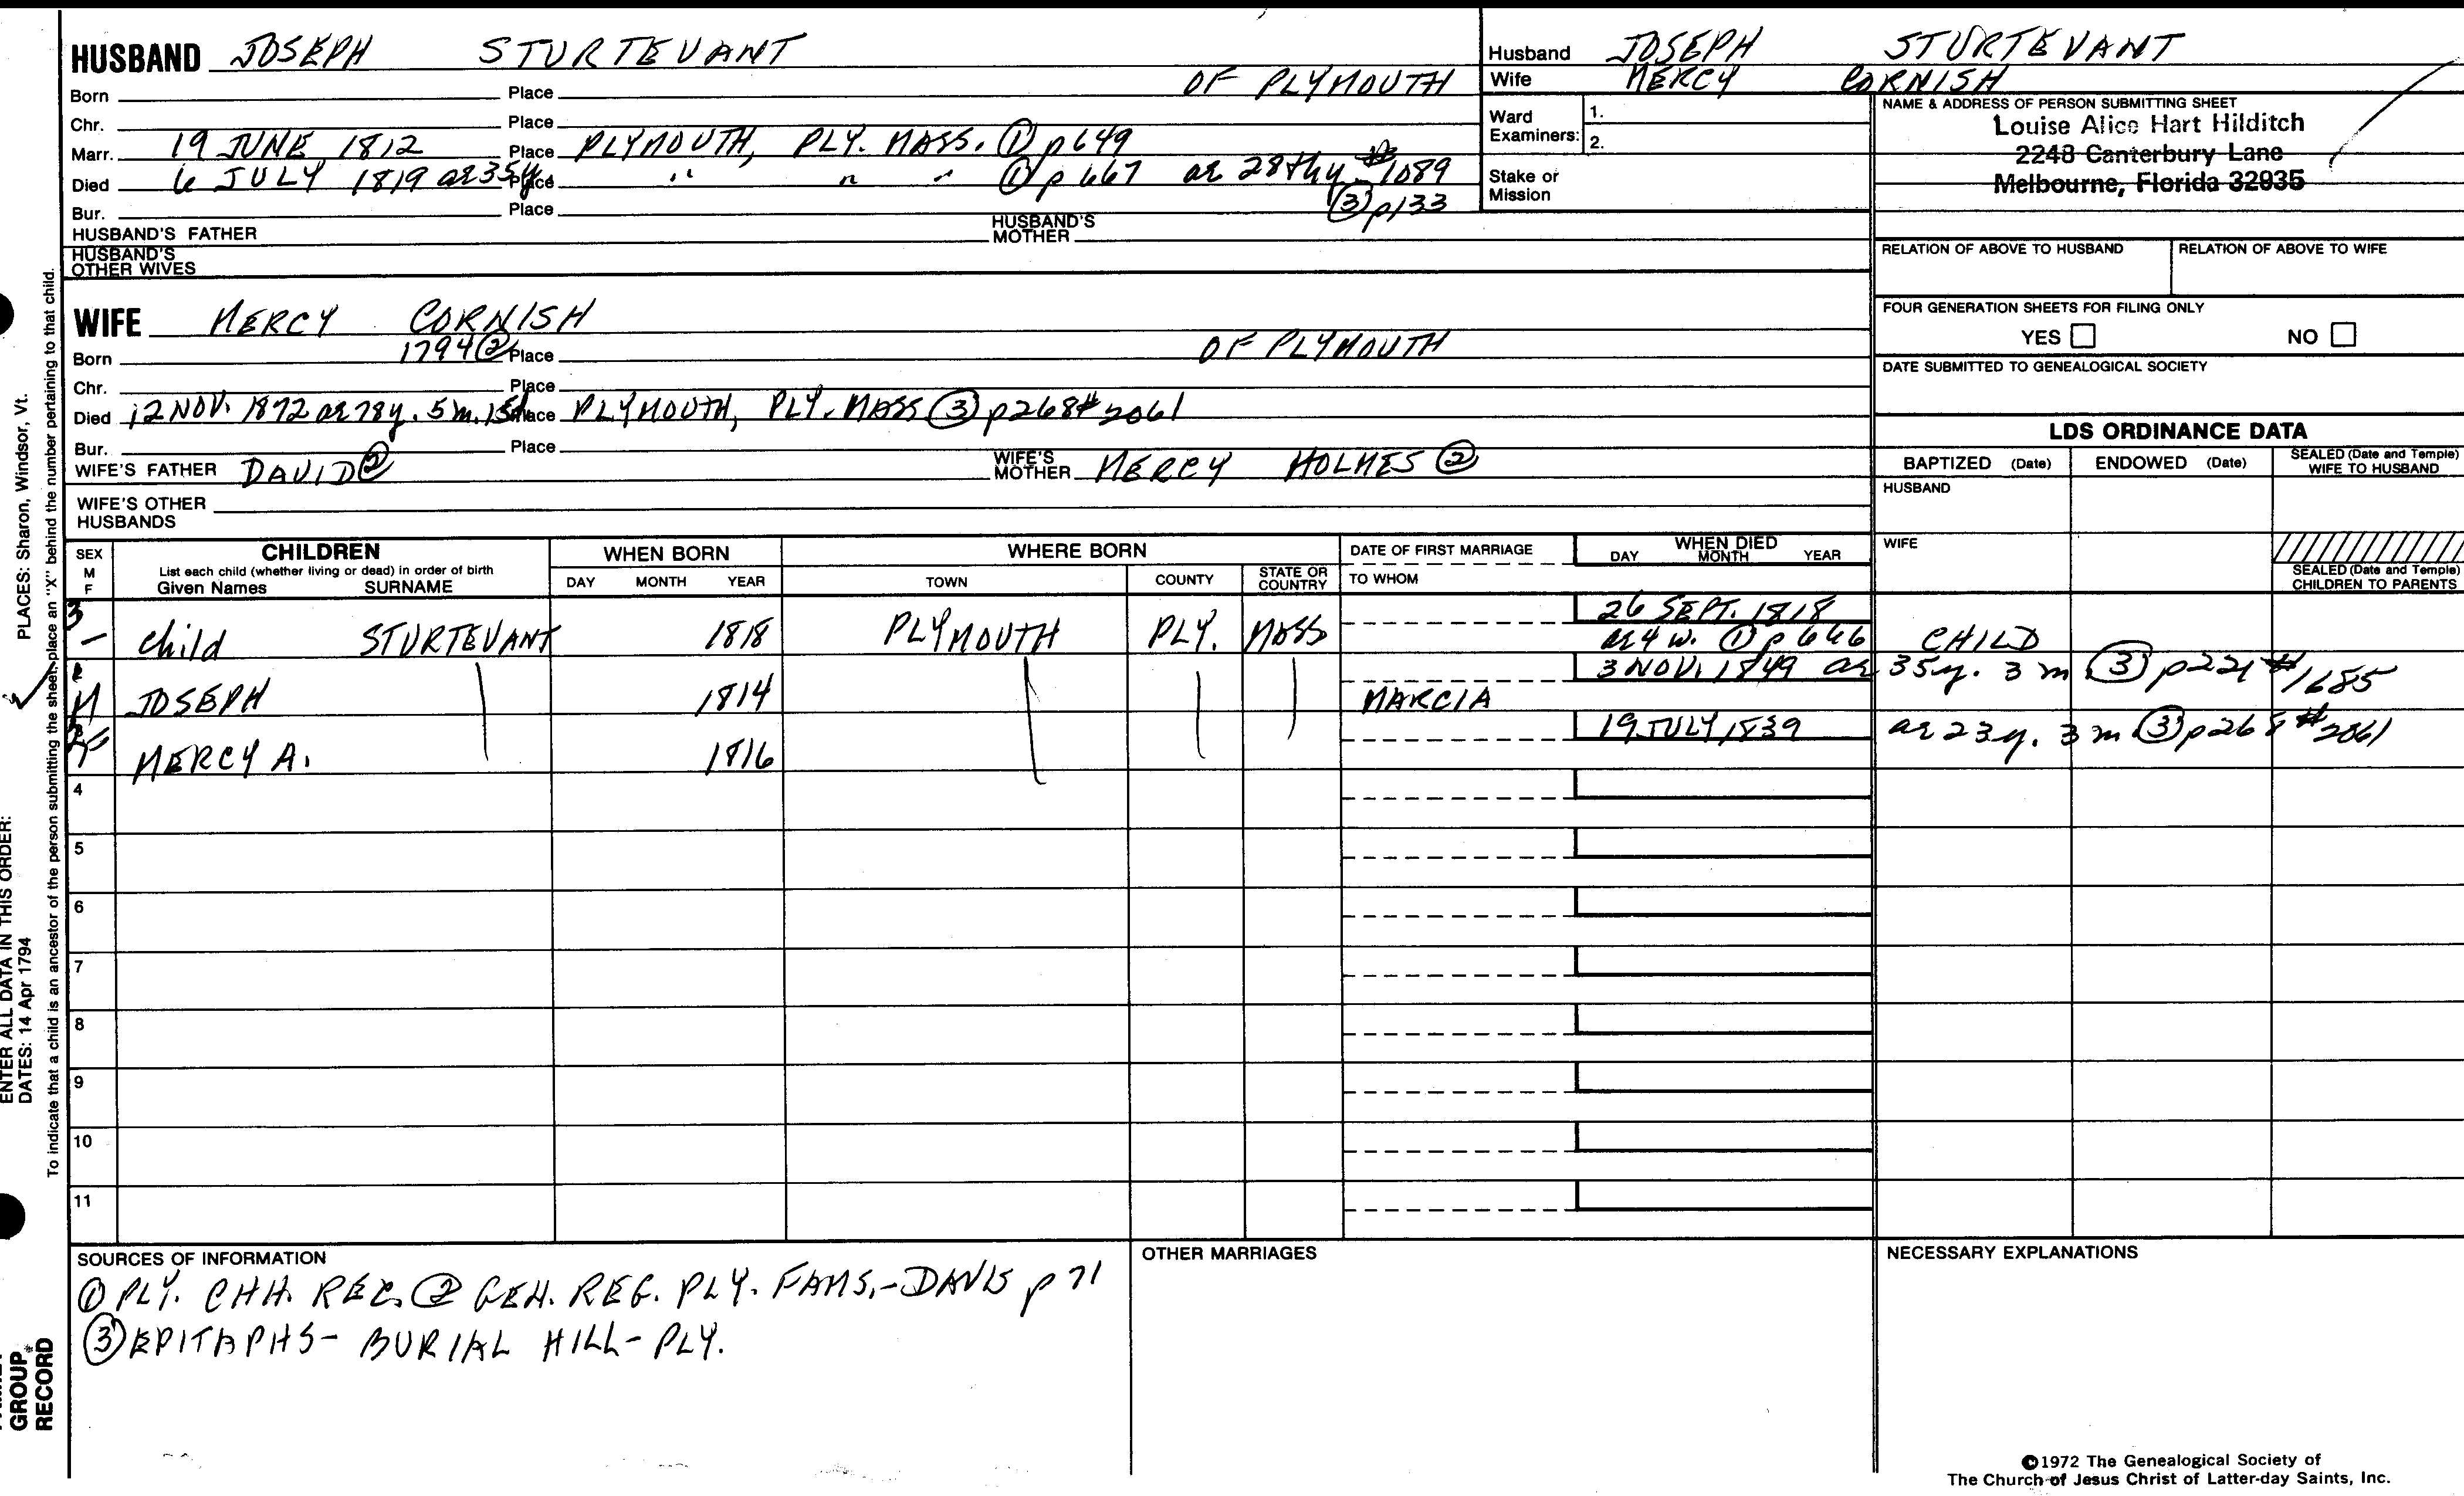 HUSBAND JOSEPH STURTEVANT
Born Place OF PLYMOUTH
Chr. Place
Marr. 19 JUNE 1812 Place PLYMOUTH, PLY. MASS. ① p649
Died 6 JULY 1819 ae 35y Place " " " ① p 667 ae 28thy #1089
Bur. Place ③ p133
HUSBAND'S FATHER HUSBAND'S MOTHER
HUSBAND'S OTHER WIVES
Husband JOSEPH STURTEVANT
Wife MERCY CORNISH
Ward Examiners: 1.
2.
Stake or Mission
NAME & ADDRESS OF PERSON SUBMITTING SHEET
Louise Alice Hart Hilditch
2248 Canterbury Lane
Melbourne, Florida 32935
RELATION OF ABOVE TO HUSBAND RELATION OF ABOVE TO WIFE
FOUR GENERATION SHEETS FOR FILING ONLY
YES NO
DATE SUBMITTED TO GENEALOGICAL SOCIETY
WIFE MERCY CORNISH
Born 1794 ② Place OF PLYMOUTH
Chr. Place
Died 12 NOV. 1872 ae 78y. 5m. 15d Place PLYMOUTH, PLY. MASS ③ p268 # 2061
Bur. Place
WIFE'S FATHER DAVID ② WIFE'S MOTHER MERCY HOLMES ②
WIFE'S OTHER HUSBANDS
LDS ORDINANCE DATA
BAPTIZED (Date) ENDOWED (Date) SEALED (Date and Temple) WIFE TO HUSBAND
HUSBAND
WIFE
SEALED (Date and Temple) CHILDREN TO PARENTS
SEX M F CHILDREN WHEN BORN WHERE BORN DATE OF FIRST MARRIAGE WHEN DIED
List each child (whether living or dead) in order of birth
Given Names SURNAME DAY MONTH YEAR TOWN COUNTY STATE OR COUNTRY TO WHOM DAY MONTH YEAR
3 26 SEPT. 1818
- child STURTEVANT 1818 PLYMOUTH PLY. MASS ae 4 w. ① p 646 CHILD
1 3 NOV. 1849 ae 35y. 3 m ③ p221 #1685
M JOSEPH 1814 MARCIA
2 19 JULY 1839 ae 23y. 3 m ③ p268 #2061
F MERCY A. 1816
4
5
6
7
8
9
10
11
SOURCES OF INFORMATION OTHER MARRIAGES NECESSARY EXPLANATIONS
① PLY. CHH. REC. ② GEN. REG. PLY. FAMS.-DAVIS p 71
③ EPITAPHS- BURIAL HILL- PLY.
©1972 The Genealogical Society of
The Church of Jesus Christ of Latter-day Saints, Inc.
PLACES: Sharon, Windsor, Vt.
ENTER ALL DATA IN THIS ORDER:
DATES: 14 Apr 1794
To indicate that a child is an ancestor of the person submitting the sheet, place an "X" behind the number pertaining to that child.
GROUP
RECORD